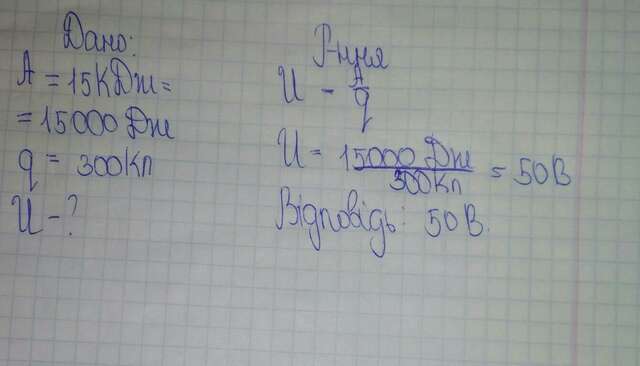 Дано:
A = 15КДж =
= 15000 Дж
q = 300Кл
U - ?
Р-ння
U - A/q
U = 15000 Дж/300Кл = 50В
Відповідь: 50В.